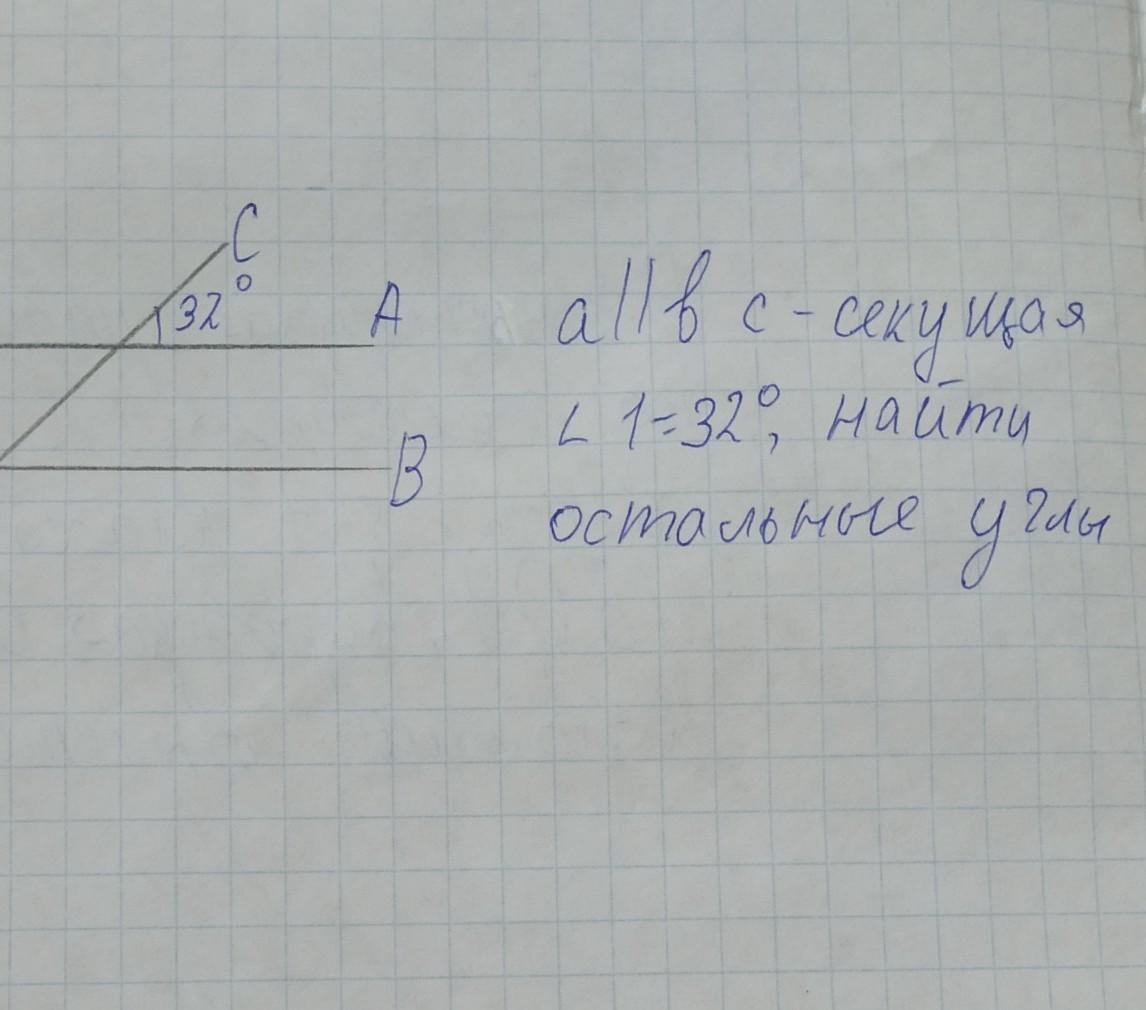 C
32°
A
a||в c - секущая
∠ 1=32°, найти
B
остальные углы